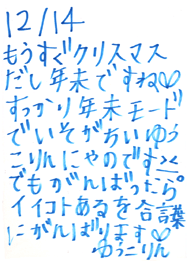 12/14
もうすぐクリスマス
だし年末ですね♡
すっかり年末モード
でいそがちいゆう
こりんにゃのです><
でもがんばったら。
イイコトあるを合言葉
にがんばります♡
ゆうこりん